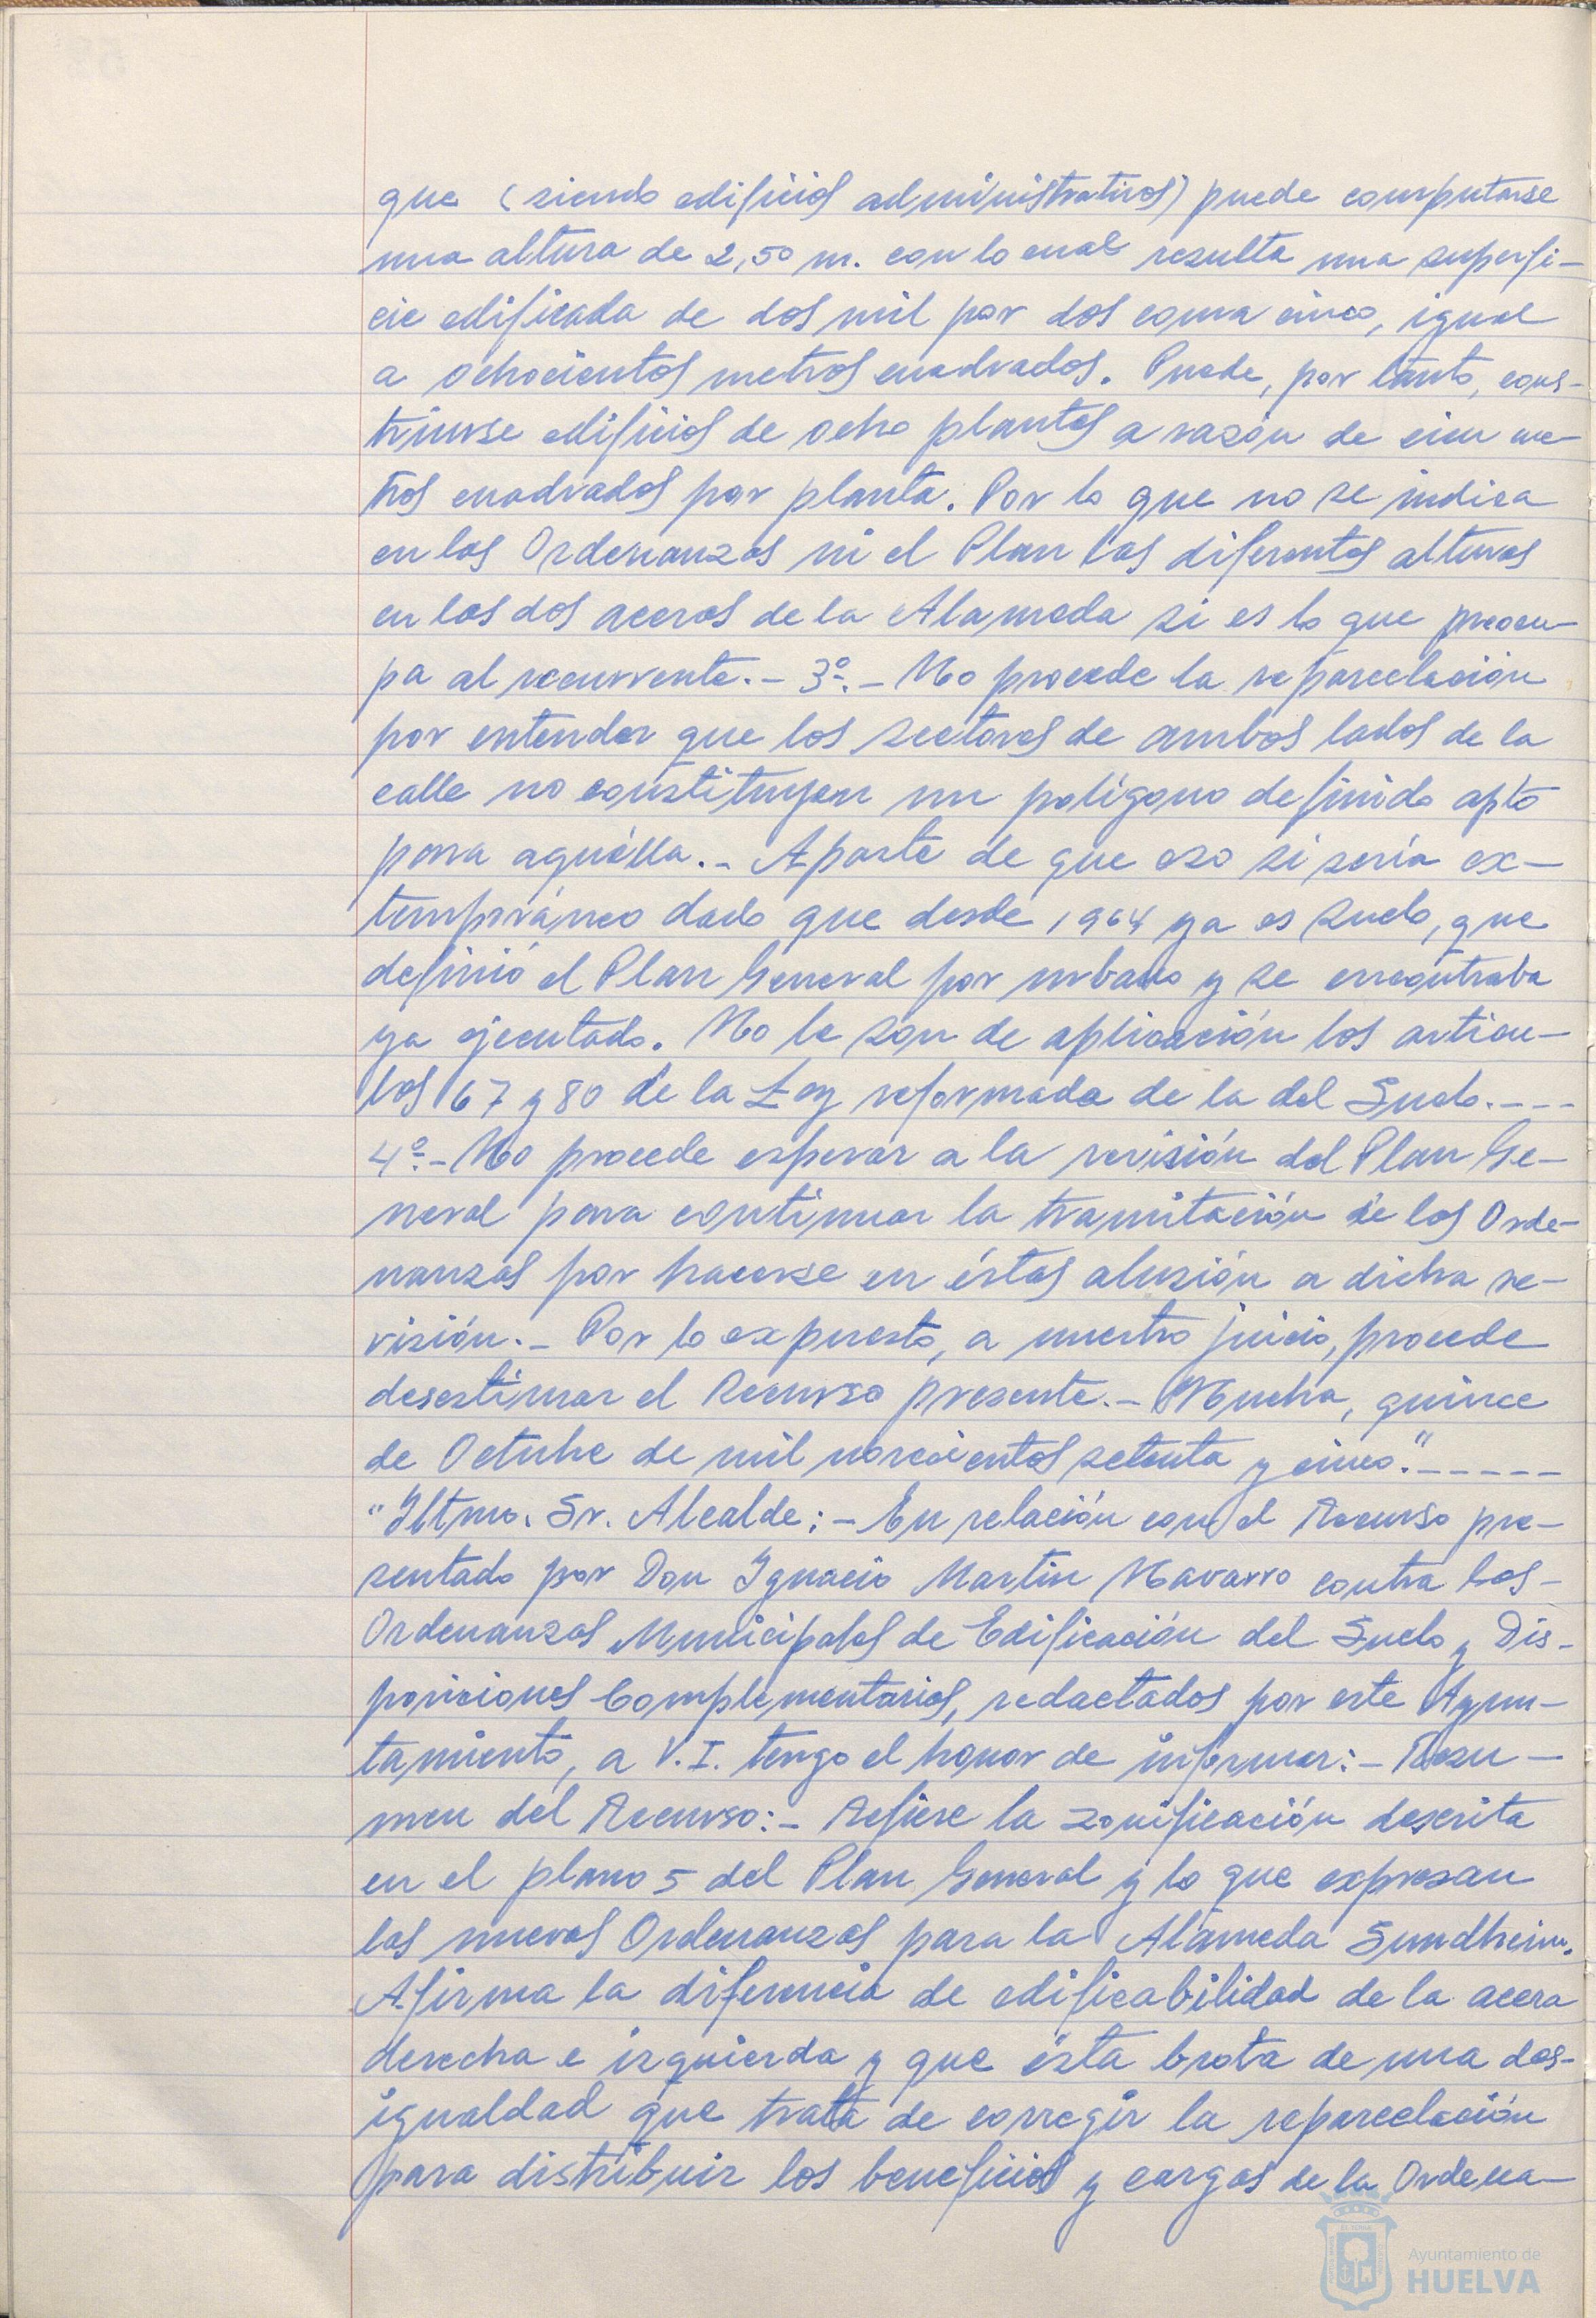 que (siendo edificios administrativos) puede computarse
una altura de 2,50 m. con lo cual resulta una superfi-
cie edificada de dos mil por dos coma cinco, igual
a ochocientos metros cuadrados. Puede, por tanto, cons-
truirse edificios de ocho plantas a razón de cien me-
tros cuadrados por planta. Por lo que no se indica
en las Ordenanzas ni el Plan las diferentes alturas
en las dos aceras de la Alameda si es lo que preocu-
pa al recurrente.- 3º.- No procede la reparcelación
por entender que los sectores de ambos lados de la
calle no constituyen un polígono definido apto
para aquélla.- Aparte de que eso si sería ex-
temporáneo dado que desde 1964 ya es suelo, que
definió el Plan General por urbano y se encontraba
ya ejecutado. No le son de aplicación los artícu-
los 67 y 80 de la Ley reformada de la del Suelo.----
4º.- No procede esperar a la revisión del Plan Ge-
neral para continuar la tramitación de las Orde-
nanzas por hacerse en éstas alusión a dicha re-
visión.- Por lo expuesto, a nuestro juicio, procede
desestimar el Recurso presente.- Huelva, quince
de Octubre de mil novecientos setenta y cinco."-----
"Iltmo. Sr. Alcalde:- En relación con el Recurso pre-
sentado por Don Ignacio Martin Navarro contra las-
Ordenanzas Municipales de Edificación del Suelo y Dis-
posiciones Complementarias, redactadas por este Ayun-
tamiento, a V.I. tengo el honor de informar:- Resu-
men del Recurso:- Refiere la zonificación descrita
en el plano 5 del Plan General y lo que expresan
las nuevas Ordenanzas para la Alameda Sundheim.
Afirma la diferencia de edificabilidad de la acera
derecha e izquierda y que ésta brota de una des-
igualdad que trata de corregir la reparcelación
para distribuir los beneficios y cargas de la Ordena-
Ayuntamiento de
HUELVA